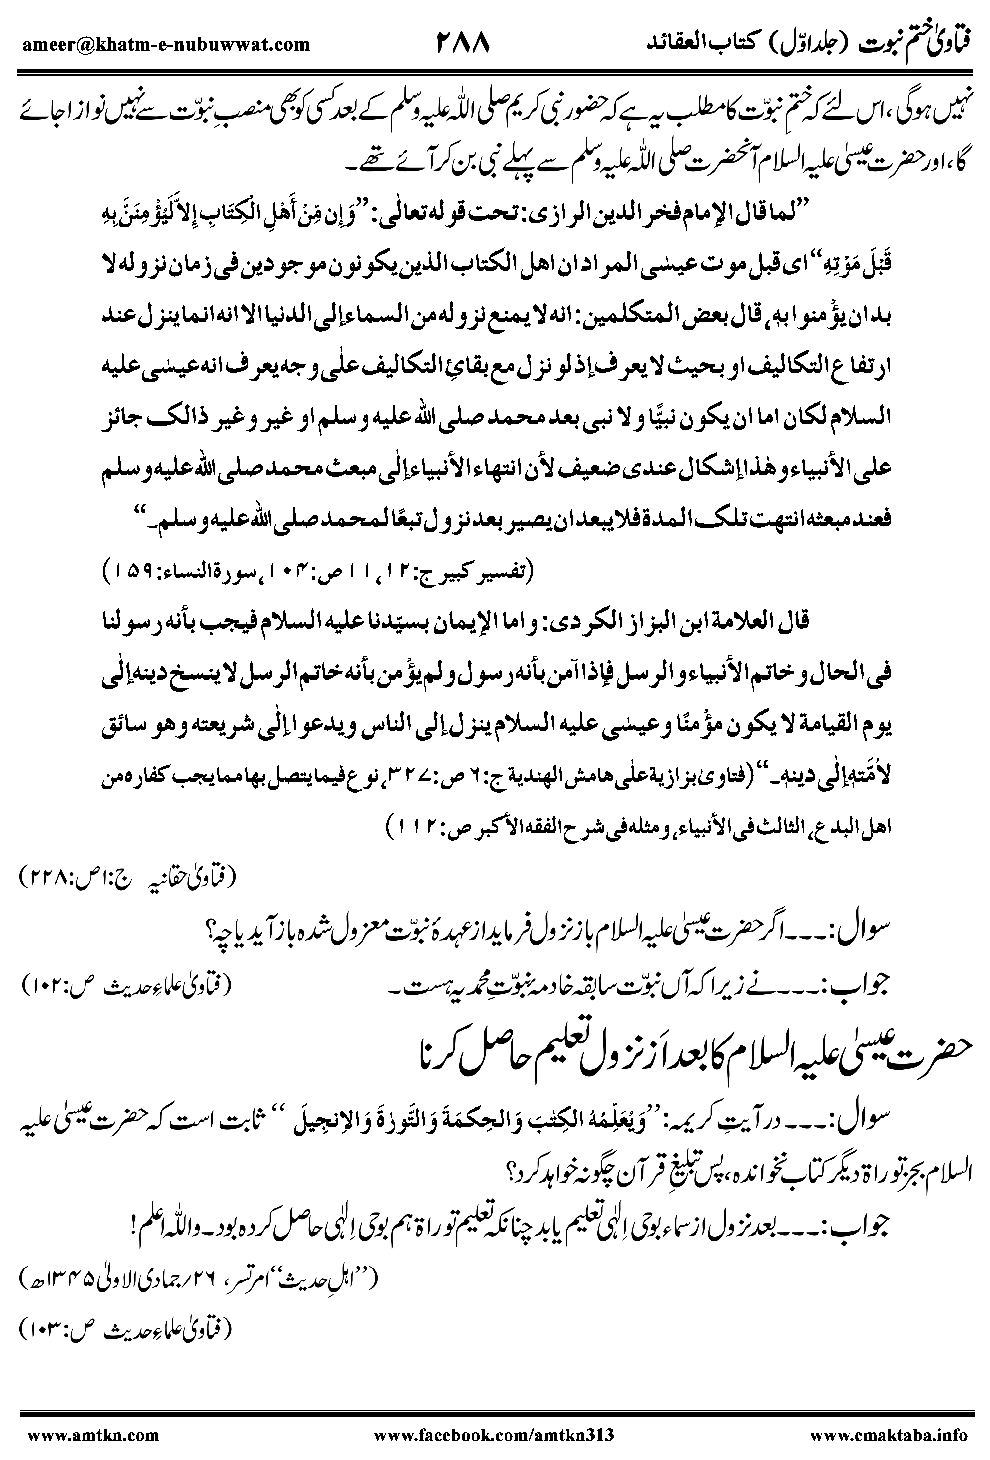 فتاویٰ ختم نبوت (جلد اوّل) کتاب العقائد ۲۸۸ ameer@khatm-e-nubuwwat.com
نہیں ہوگی، اس لئے کہ ختمِ نبوّت کا مطلب یہ ہے کہ حضور نبی کریم صلی اللہ علیہ وسلم کے بعد کسی کو بھی منصبِ نبوّت سے نہیں نوازا جائے
گا، اور حضرت عیسیٰ علیہ السلام آنحضرت صلی اللہ علیہ وسلم سے پہلے نبی بن کر آئے تھے۔
”لما قال الإمام فخر الدین الرازی: تحت قولہ تعالٰی: ”وَإِن مِّنْ أَهْلِ الْكِتَابِ إِلاَّ لَيُؤْمِنَنَّ بِهِ
قَبْلَ مَوْتِهِ“ ای قبل موت عیسٰی المراد ان اهل الکتاب الذین یکونون موجودین فی زمان نزوله لا
بد ان یؤمنوا به، قال بعض المتکلمین: انه لا یمنع نزوله من السماء إلی الدنیا الا انه انما ینزل عند
ارتفاع التکالیف او بحیث لا یعرف إذ لو نزل مع بقائِ التکالیف علٰی وجه یعرف انه عیسٰی علیه
السلام لکان اما ان یکون نبیًّا ولا نبی بعد محمد صلی اللہ علیه وسلم او غیر وغیر ذالک جائز
علی الأنبیاء وھٰذا إشکال عندی ضعیف لأن انتهاء الأنبیاء إلٰی مبعث محمد صلی اللہ علیه وسلم
فعند مبعثه انتهت تلک المدة فلا یبعد ان یصیر بعد نزول تبعًا لمحمد صلی اللہ علیه وسلم۔“
(تفسیر کبیر ج: ۱۲، ۱۱ ص: ۱۰۴، سورة النساء: ۱۵۹)
قال العلامة ابن البزاز الکردی: واما الإیمان بسیّدنا علیه السلام فیجب بأنه رسولنا
فی الحال وخاتم الأنبیاء والرسل فإذا آمن بأنه رسول ولم یؤمن بأنه خاتم الرسل لا ینسخ دینه إلٰی
یوم القیامة لا یکون مؤمنًا وعیسٰی علیه السلام ینزل إلی الناس ویدعوا إلٰی شریعته وهو سائق
لأمّته إلٰی دینه۔“ (فتاویٰ بزازیة علٰی هامش الهندیة ج: ۶ ص: ۳۲۷، نوع فیما یتصل بها مما یجب کفاره من
اهل البدع، الثالث فی الأنبیاء، ومثله فی شرح الفقه الأکبر ص: ۱۱۲)
(فتاویٰ حقانیہ ج: ۱ ص: ۲۲۸)
سوال:۔۔۔ اگر حضرت عیسیٰ علیہ السلام باز نزول فرماید از عہدۂ نبوّت معزول شدہ باز آید یا چہ؟
جواب:۔۔۔ نے زیرا کہ آں نبوّت سابقہ خادمۂ نبوّتِ محمدیہ ہست۔ (فتاویٰ علماء حدیث ص: ۱۰۲)
حضرت عیسیٰ علیہ السلام کا بعد اَز نزول تعلیم حاصل کرنا
سوال:۔۔۔ در آیتِ کریمہ: ”وَيُعَلِّمُهُ الْكِتٰبَ وَالْحِكْمَةَ وَالتَّوْرٰةَ وَالإِنجِيلَ“ ثابت است کہ حضرت عیسیٰ علیہ
السلام بجز توراۃ دیگر کتاب نخواندہ، پس تبلیغِ قرآن چگونہ خواہد کرد؟
جواب:۔۔۔ بعد نزول از سماء بوحی اِلٰہی تعلیم یابد چنانکہ تعلیم توراۃ ہم بوحی اِلٰہی حاصل کردہ بود۔ واللہ اعلم!
(”اہلِ حدیث“ امرتسر، ۲۶/جمادی الاولیٰ ۱۳۴۵ھ)
(فتاویٰ علماء حدیث ص: ۱۰۳)
www.amtkn.com www.facebook.com/amtkn313 www.cmaktaba.info